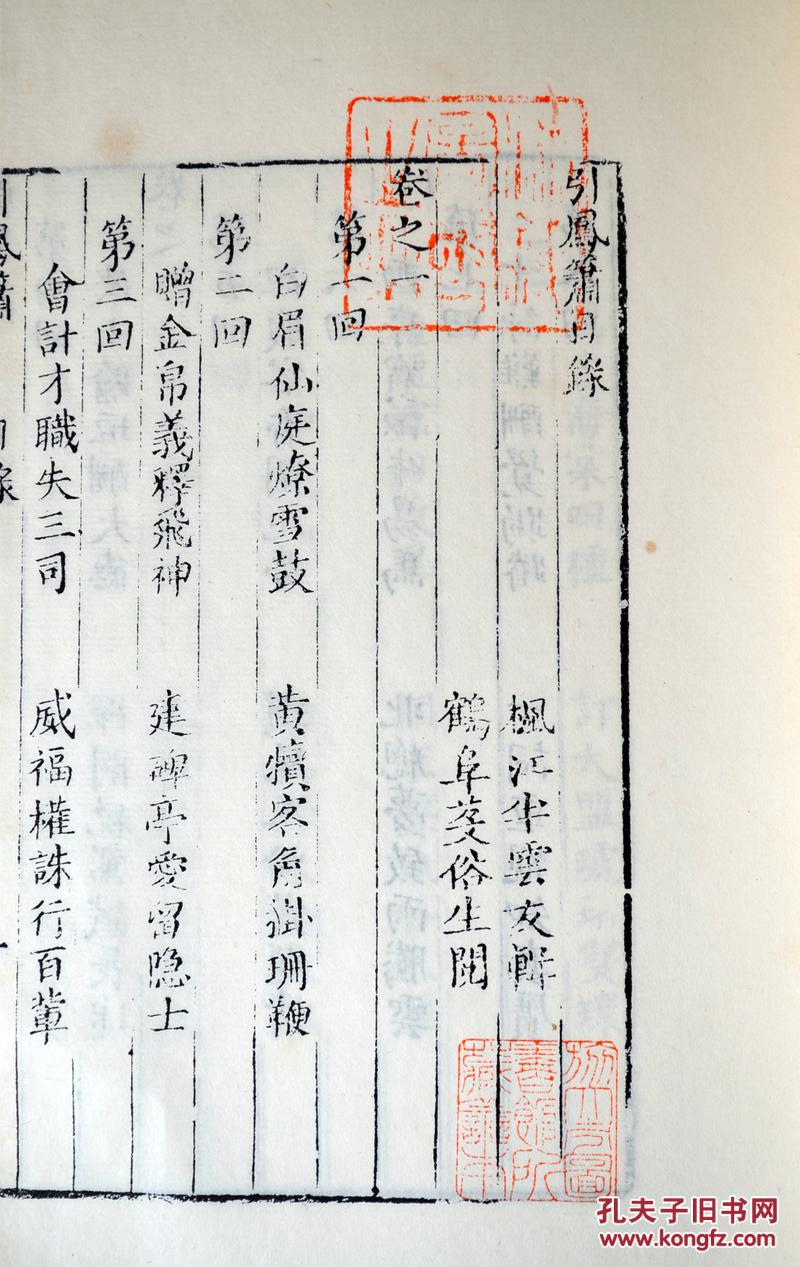 引鳳簫目錄
楓江半雲友輯
鶴阜芟俗生閱
卷之一
第一回
白眉仙庭燎雪鼓 黃犢客角掛珊鞭
第二回
贈金帛義釋飛神 建碑亭愛留隐士
第三回
會計才職失三司 威福權誅行百輩
引鳳簫 目錄
孔夫子旧书网
www.kongfz.com